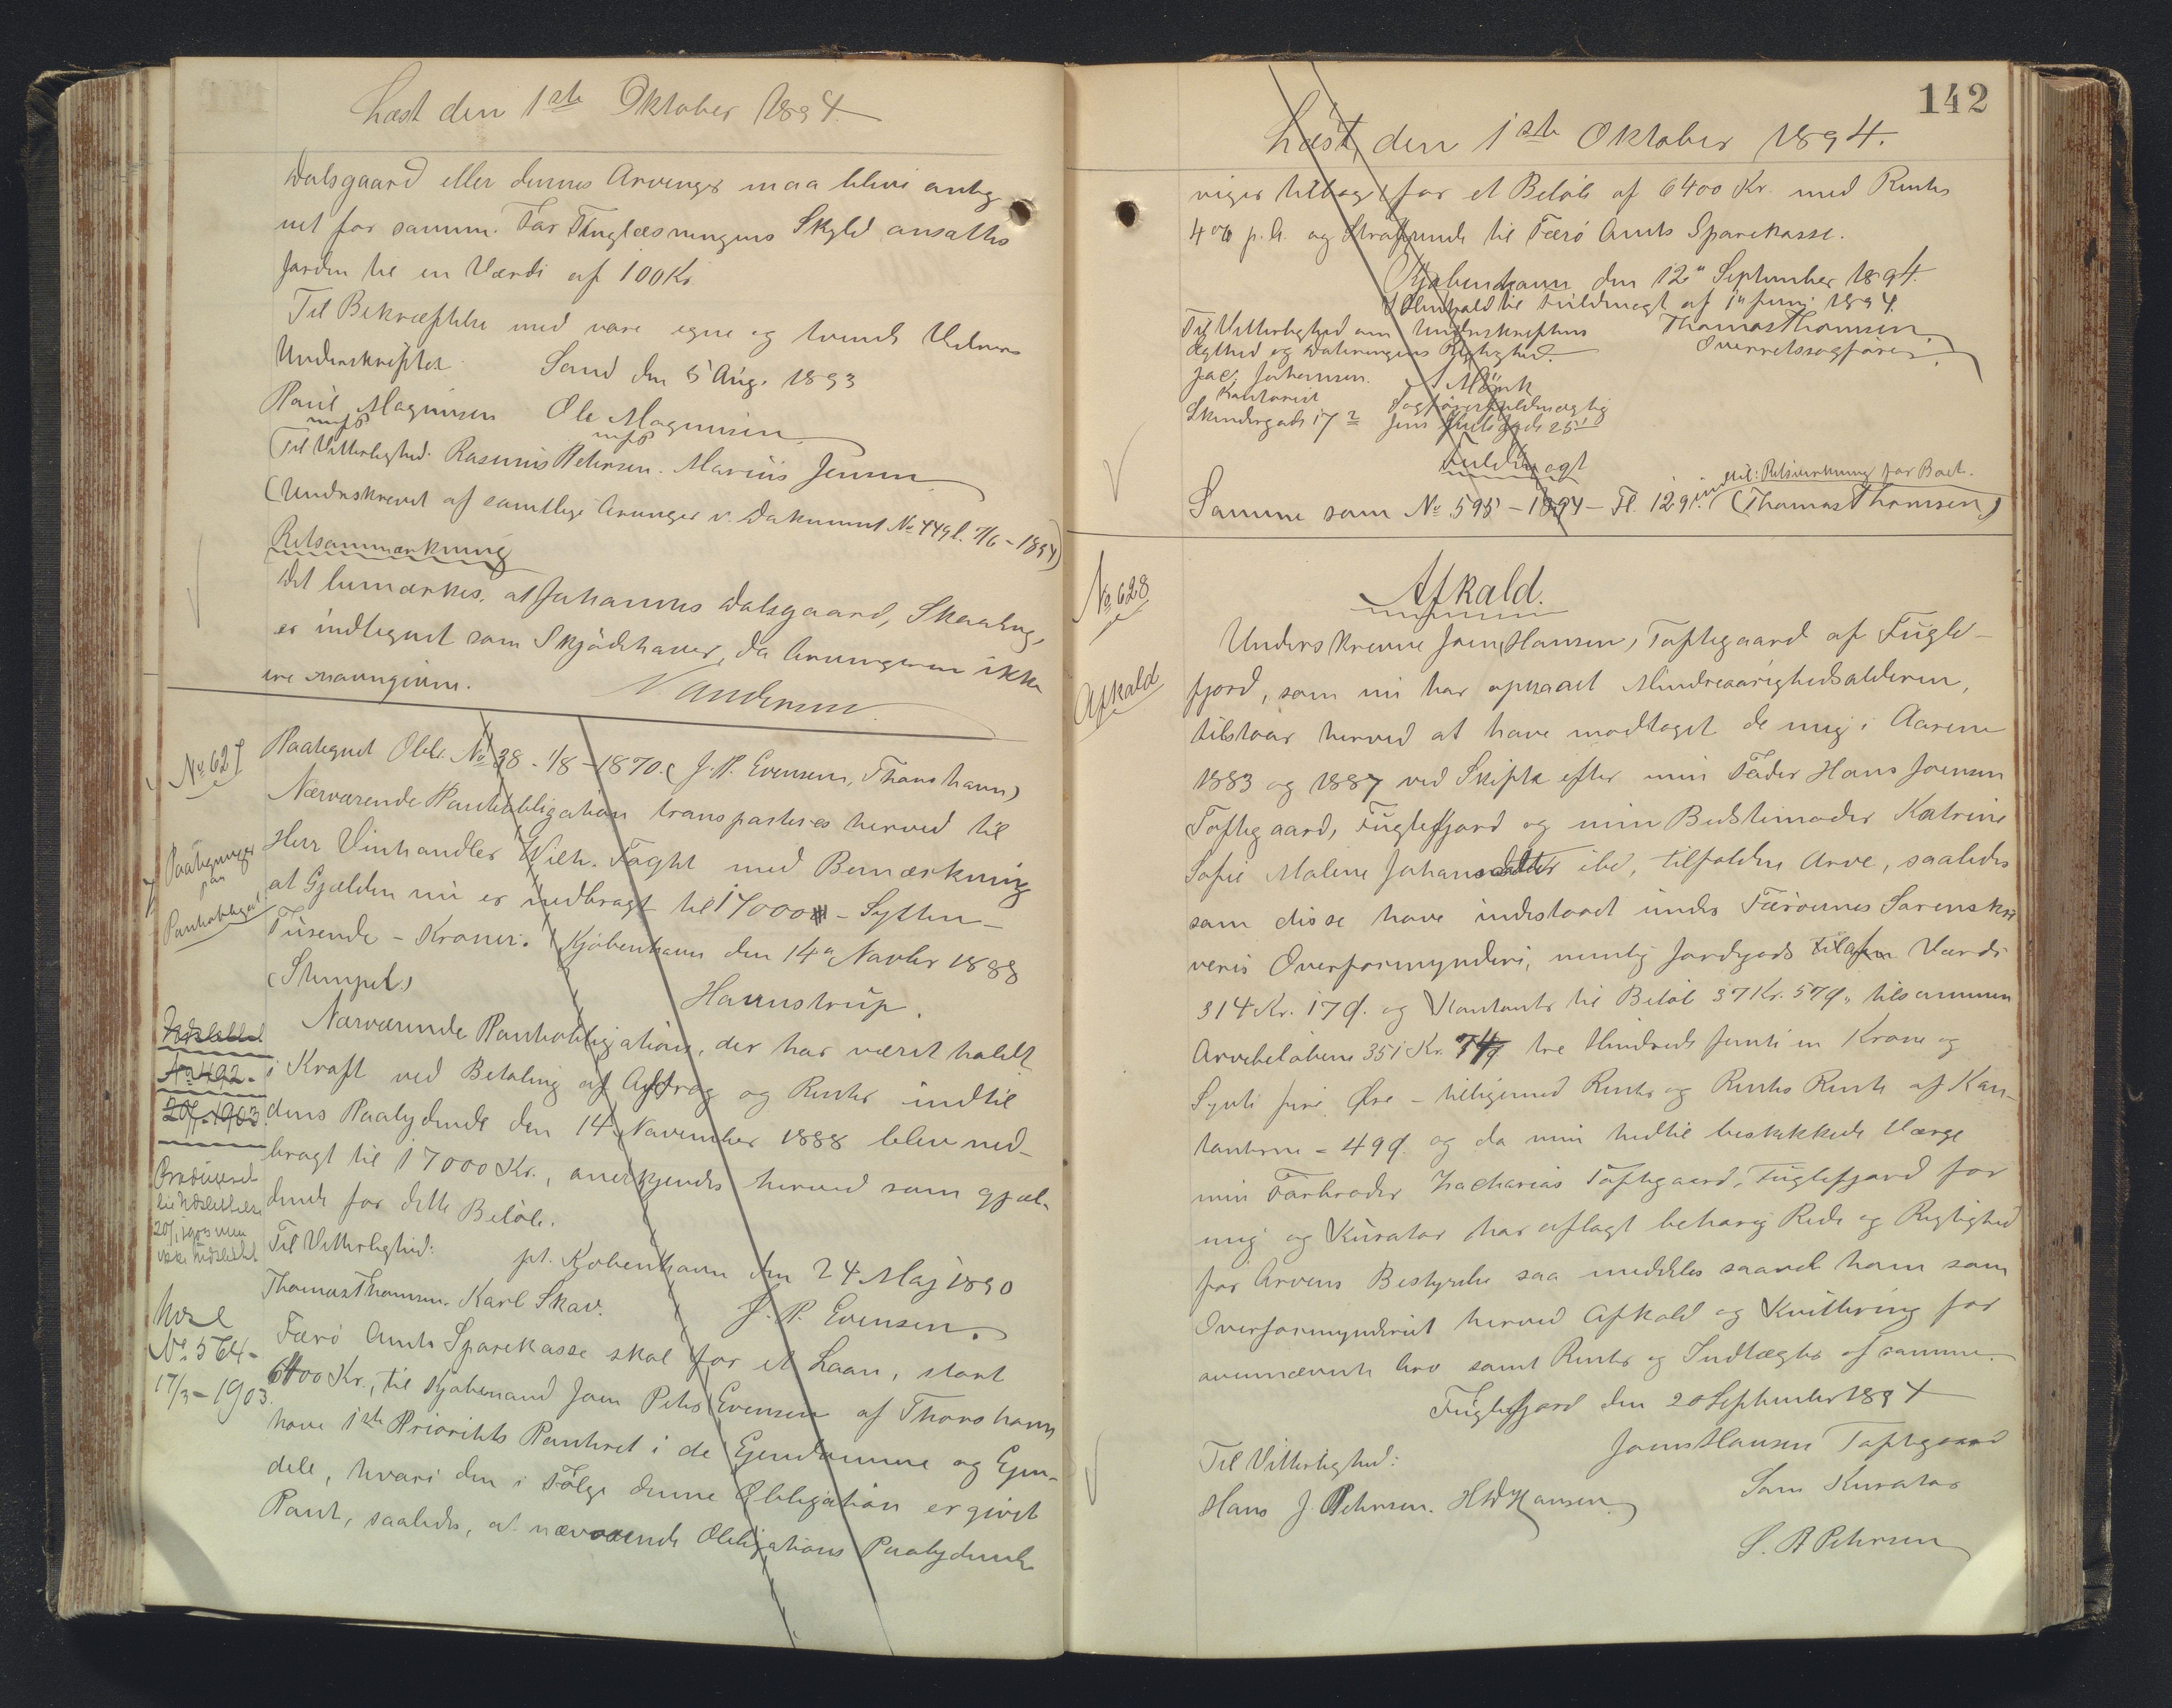 Læst den 1ste Oktober 1894.
Dalsgaard eller dennes Arvinger maa blive anteg
net for samme. For Tinglæsningens Skyld ansættes
Jorden til en Værdi af 100 Kr.
Til Bekræftelse med vore egne og tvende Vidners
Underskrifter.
Sand den 5 Aug. 1893
Poul Magnussen Ole Magnussen
mfP mfP
(Til Vitterlighed. Rasmus Petersen. Marius Jensen
(Underskrevet af samtlige Arvinger v. Dokument No 449 l. 7/6-1894)
Retsanmærkning
Det bemærkes, at Johannes Dalsgaard, Skaalevig,
er indtegnet som Skjødehaver, da Arvingerne ikke
ere navngivne.
N. Andersen
No 627
Paategninger
paa
Pantobligat.
Paategnet Obl. No 38 - 1/8 - 1870. (J. P. Evensen, Thorshavn)
Nærværende Pantobligation transporteres herved til
Herr Vinhandler Wilh. Foght med Bemærkning
at Gjælden nu er nedbragt til 17000 - Sytten
Tusende - Kroner. Kjøbenhavn den 14de Novbr 1888
(Stempel)
Hannstrup.
Nærværende Pantobligation, der har været holdt
i Kraft ved Betaling af Afdrag og Renter indtil
dens Paalydende den 14 November 1888 blev ned-
bragt til 17000 Kr., anerkjendes herved som gjæl-
dende for dette Beløb.
Udslettet
No 492-
20/1-1903.
Produceret
til Udslettelse
20/1 1903 men
ikke Udslettet
Til Vitterlighed:
pt. Kjøbenhavn den 24 Maj 1890
Thomas Thomsen. Karl Skav.
J. P. Evensen.
No 564-
17/3-1903.
Færø Amts Sparekasse skal for et Laan, stort
6400 Kr., til Kjøbmand Joen Peter Evensen af Thorshavn
have 1ste Prioritets Panteret i de Ejendomme og Ejen-
dele, hvori den i Følge denne Obligation er givet
Pant, saaledes, at nærværende Obligations Paalydende
142
Læst den 1ste Oktober 1894.
viger tilbage for et Beløb af 6400 Kr. med Renter
4% p. A. og til Færø Amts Sparekasse.
Kjøbenhavn den 12te September 1894.
I Henhold til Fuldmagt af 1te Juni 1894.
Til Vitterlighed om Underskriftens
Thomas Thomsen
Ægthed og Dateringens Rigtighed.
Overretssagfører
Jac. Johansen. Mörk
Kontorist Sagførerfuldmægtig
Skindergade 17 2 Jens Juels Gade 25 1
Fuldmagt
Samme som No 595 - 1894 - Fl. 129. (Thomas Thomsen)
No 628
Afkald
Afkald.
Underskrevne Joen Hansen, Toftegaard af Fugle-
fjord, som nu har opnaaet Mindreaarighedsalderen,
tilstaar herved at have modtaget de mig i Aarene
1883 og 1887 ved Skifte efter min Fader Hans Joensen
Toftegaard, Fuglefjord og min Bedstemoder Katrine
Sofie Malene Johansdatter ibd, tilfaldne Arve, saaledes
som disse have indestaaet under Færøernes Sorenskri
veris Overformynderi, nemlig Jordgods til en Værdi
314 Kr. 17 Ø. og Kontanter til Beløb 37 Kr. 57 Ø., tilsammen
Arvebeløbene 351 Kr. 74 Ø tre Hundrede femti en Krone og
Sytti fire Øre - tilligemed Renter og Renters Rente af Kon-
tanterne = 49 Ø. og da min hidtil beskikkede Værge
min Farbroder Zacharias Toftegaard, Fuglefjord for
mig og Kurator har aflagt behørig Rede og Rigtighed
for Arvens Bestyrelse saa meddeles saavel ham som
Overformynderiet herved Afkald og Kvittering for
ovennævnte Arv samt Renter og Indtægter af samme.
Fuglefjord den 20 September 1894
Joen Hansen Toftegaard
Til Vitterlighed:
Som Kurator
Hans J. Petersen. H W Hansen
S. P Petersen